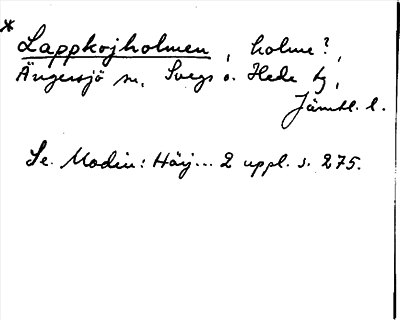 * Lappkojholmen, holme?,
Ängersjö sn, Svegs o. Hede tg,
Jämtl. l.
Se. Modin: Härj... 2 uppl. s. 275.